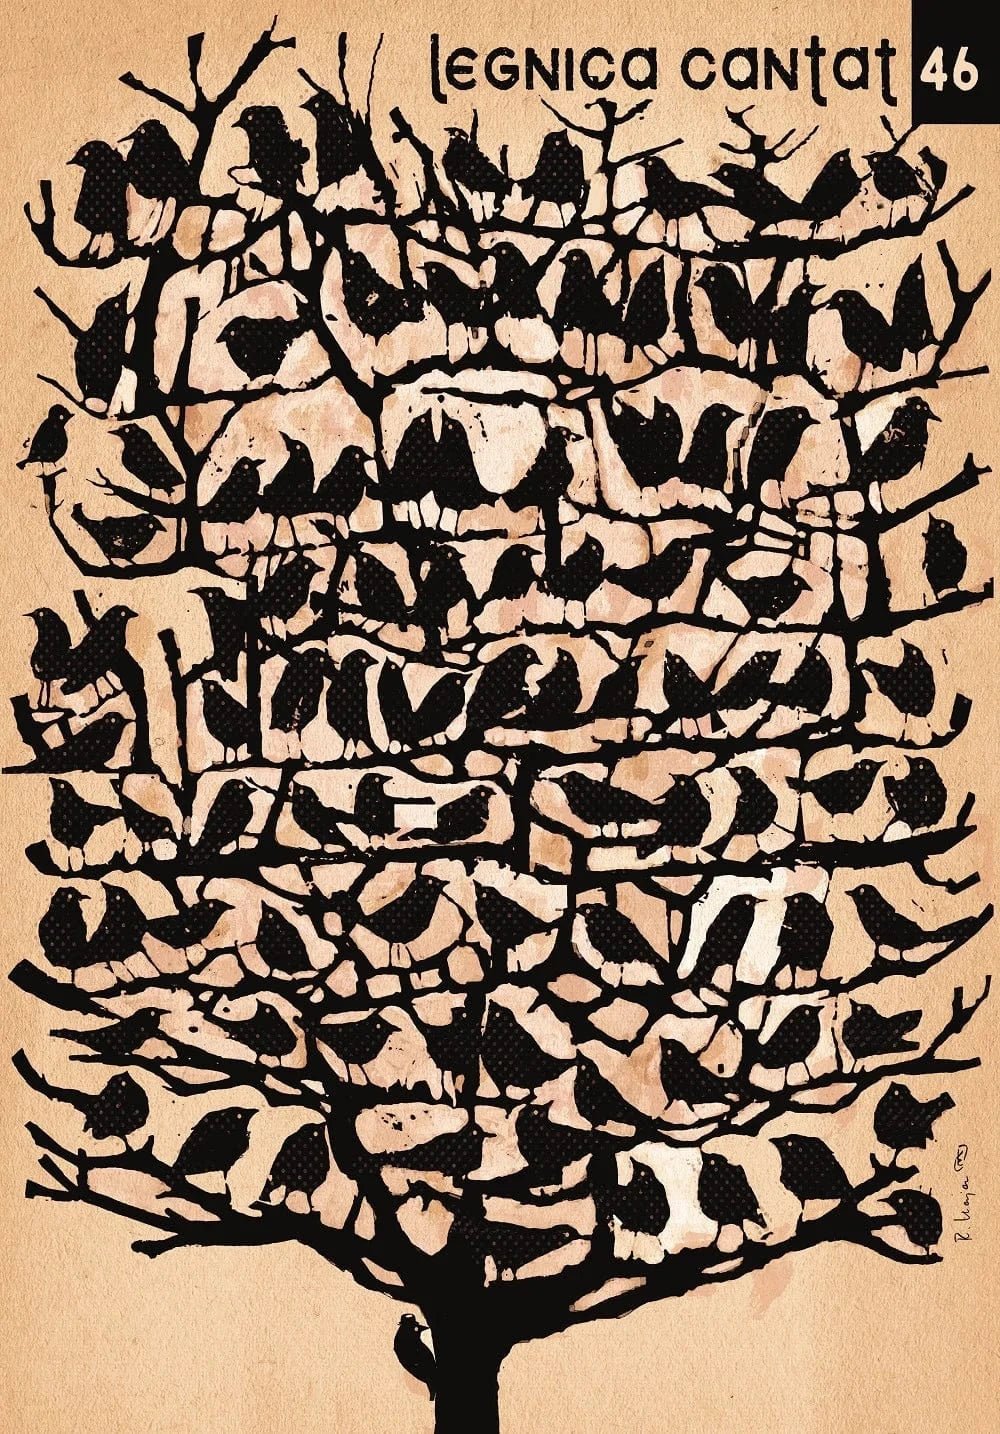 legnica cantat 46
R. Kaja